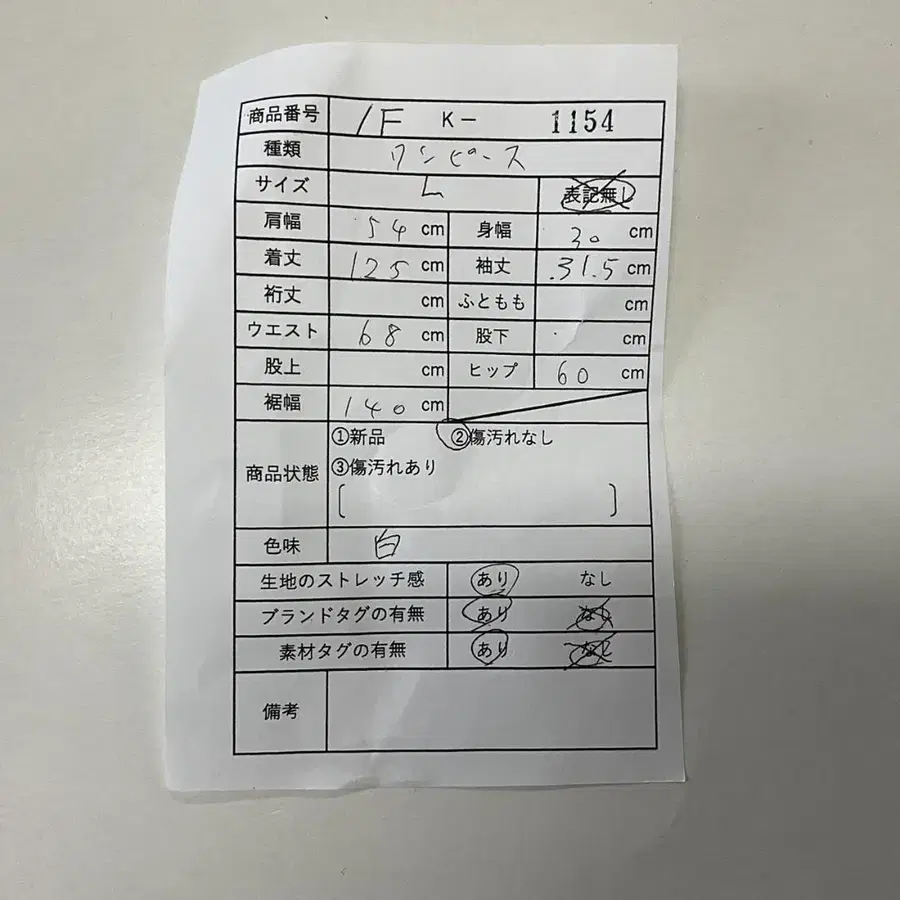 商品番号 1F K- 1154
種類 ワンピース
サイズ L 表記無し
肩幅 54 cm 身幅 30 cm
着丈 125 cm 袖丈 31.5 cm
裄丈 cm ふともも cm
ウエスト 68 cm 股下 cm
股上 cm ヒップ 60 cm
裾幅 140 cm
商品状態 ①新品 ②傷汚れなし
③傷汚れあり
[ ]
色味 白
生地のストレッチ感 あり なし
ブランドタグの有無 あり なし
素材タグの有無 あり なし
備考